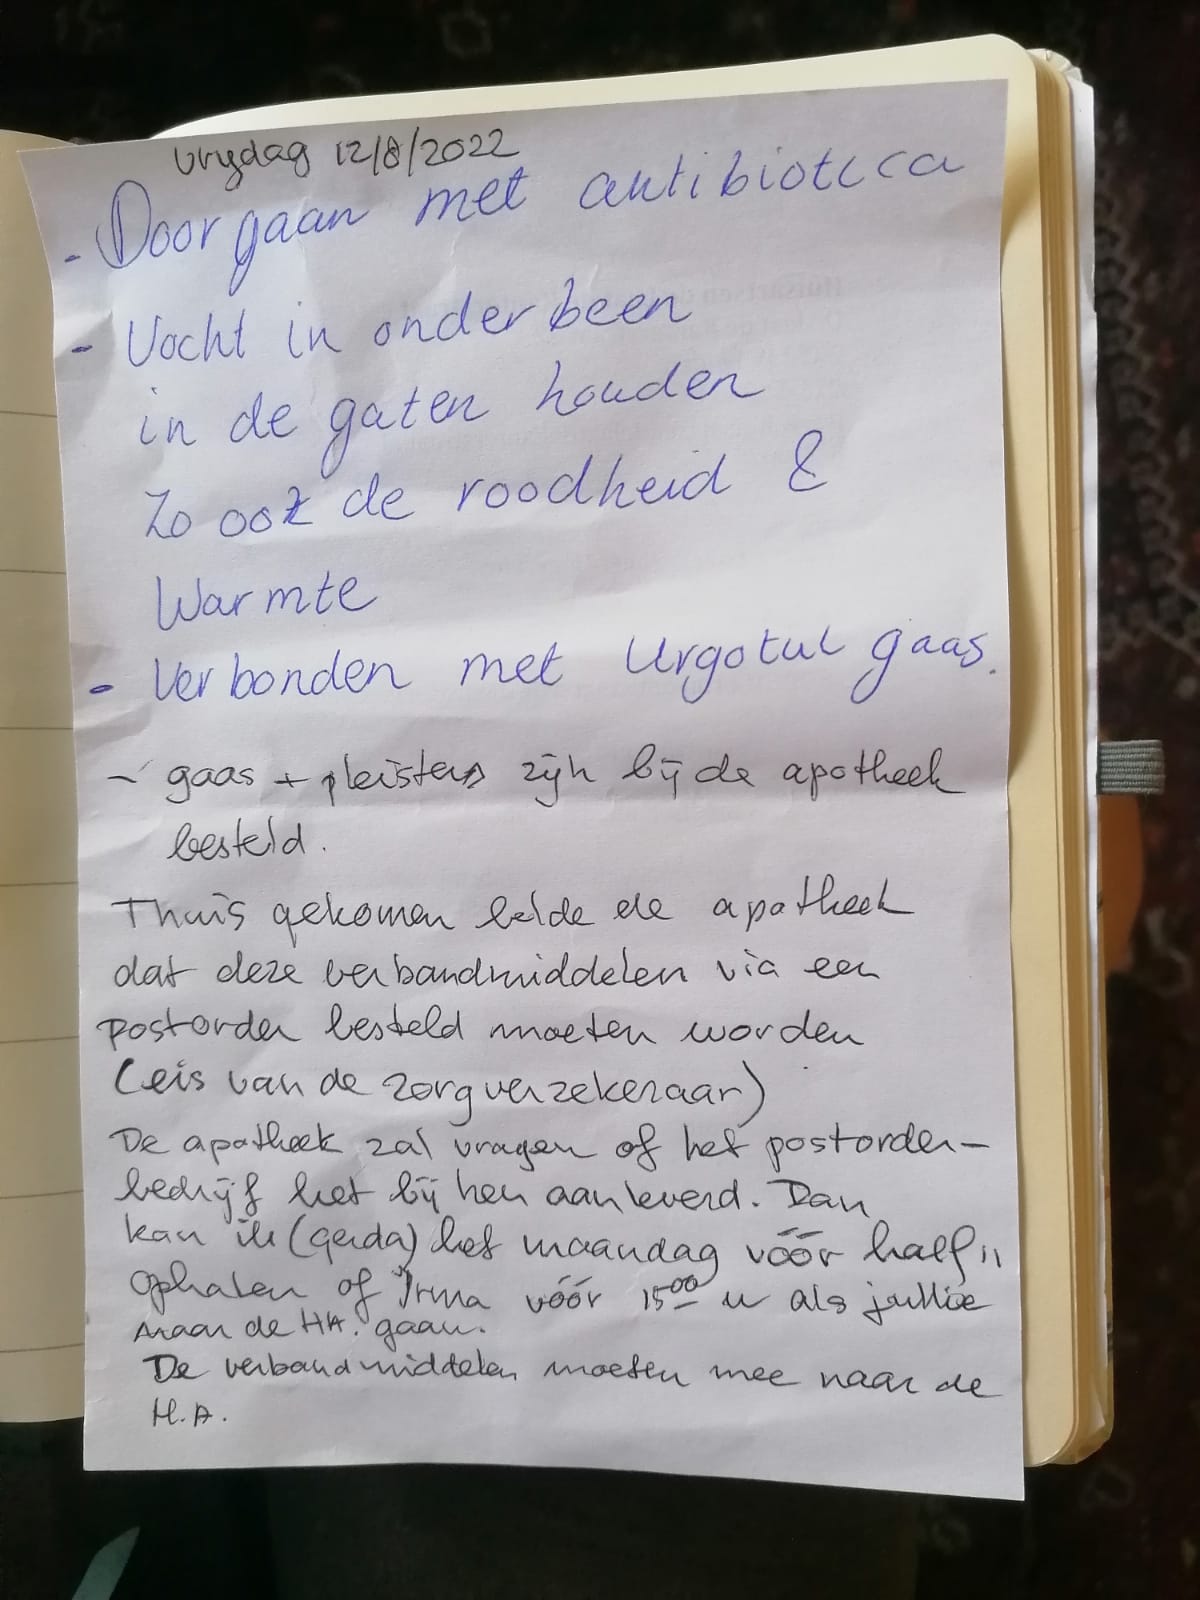 vrijdag 12/8/2022
- Doorgaan met antibiotica
- Vocht in onderbeen
in de gaten houden
Zo ook de roodheid &
Warmte
- Verbonden met Urgotul gaas.
- gaas + pleisters zijn bij de apotheek
besteld.
Thuis gekomen belde de apotheek
dat deze verbandmiddelen via een
postorder besteld moeten worden
(eis van de zorgverzekeraar)
De apotheek zal vragen of het postorder-
bedrijf het bij hen aanleverd. Dan
kan ik (Gerda) het maandag vóór half 11
ophalen of Irma vóór 15.00 u als jullie
naar de HA. gaan.
De verbandmiddelen moeten mee naar de
H.A.